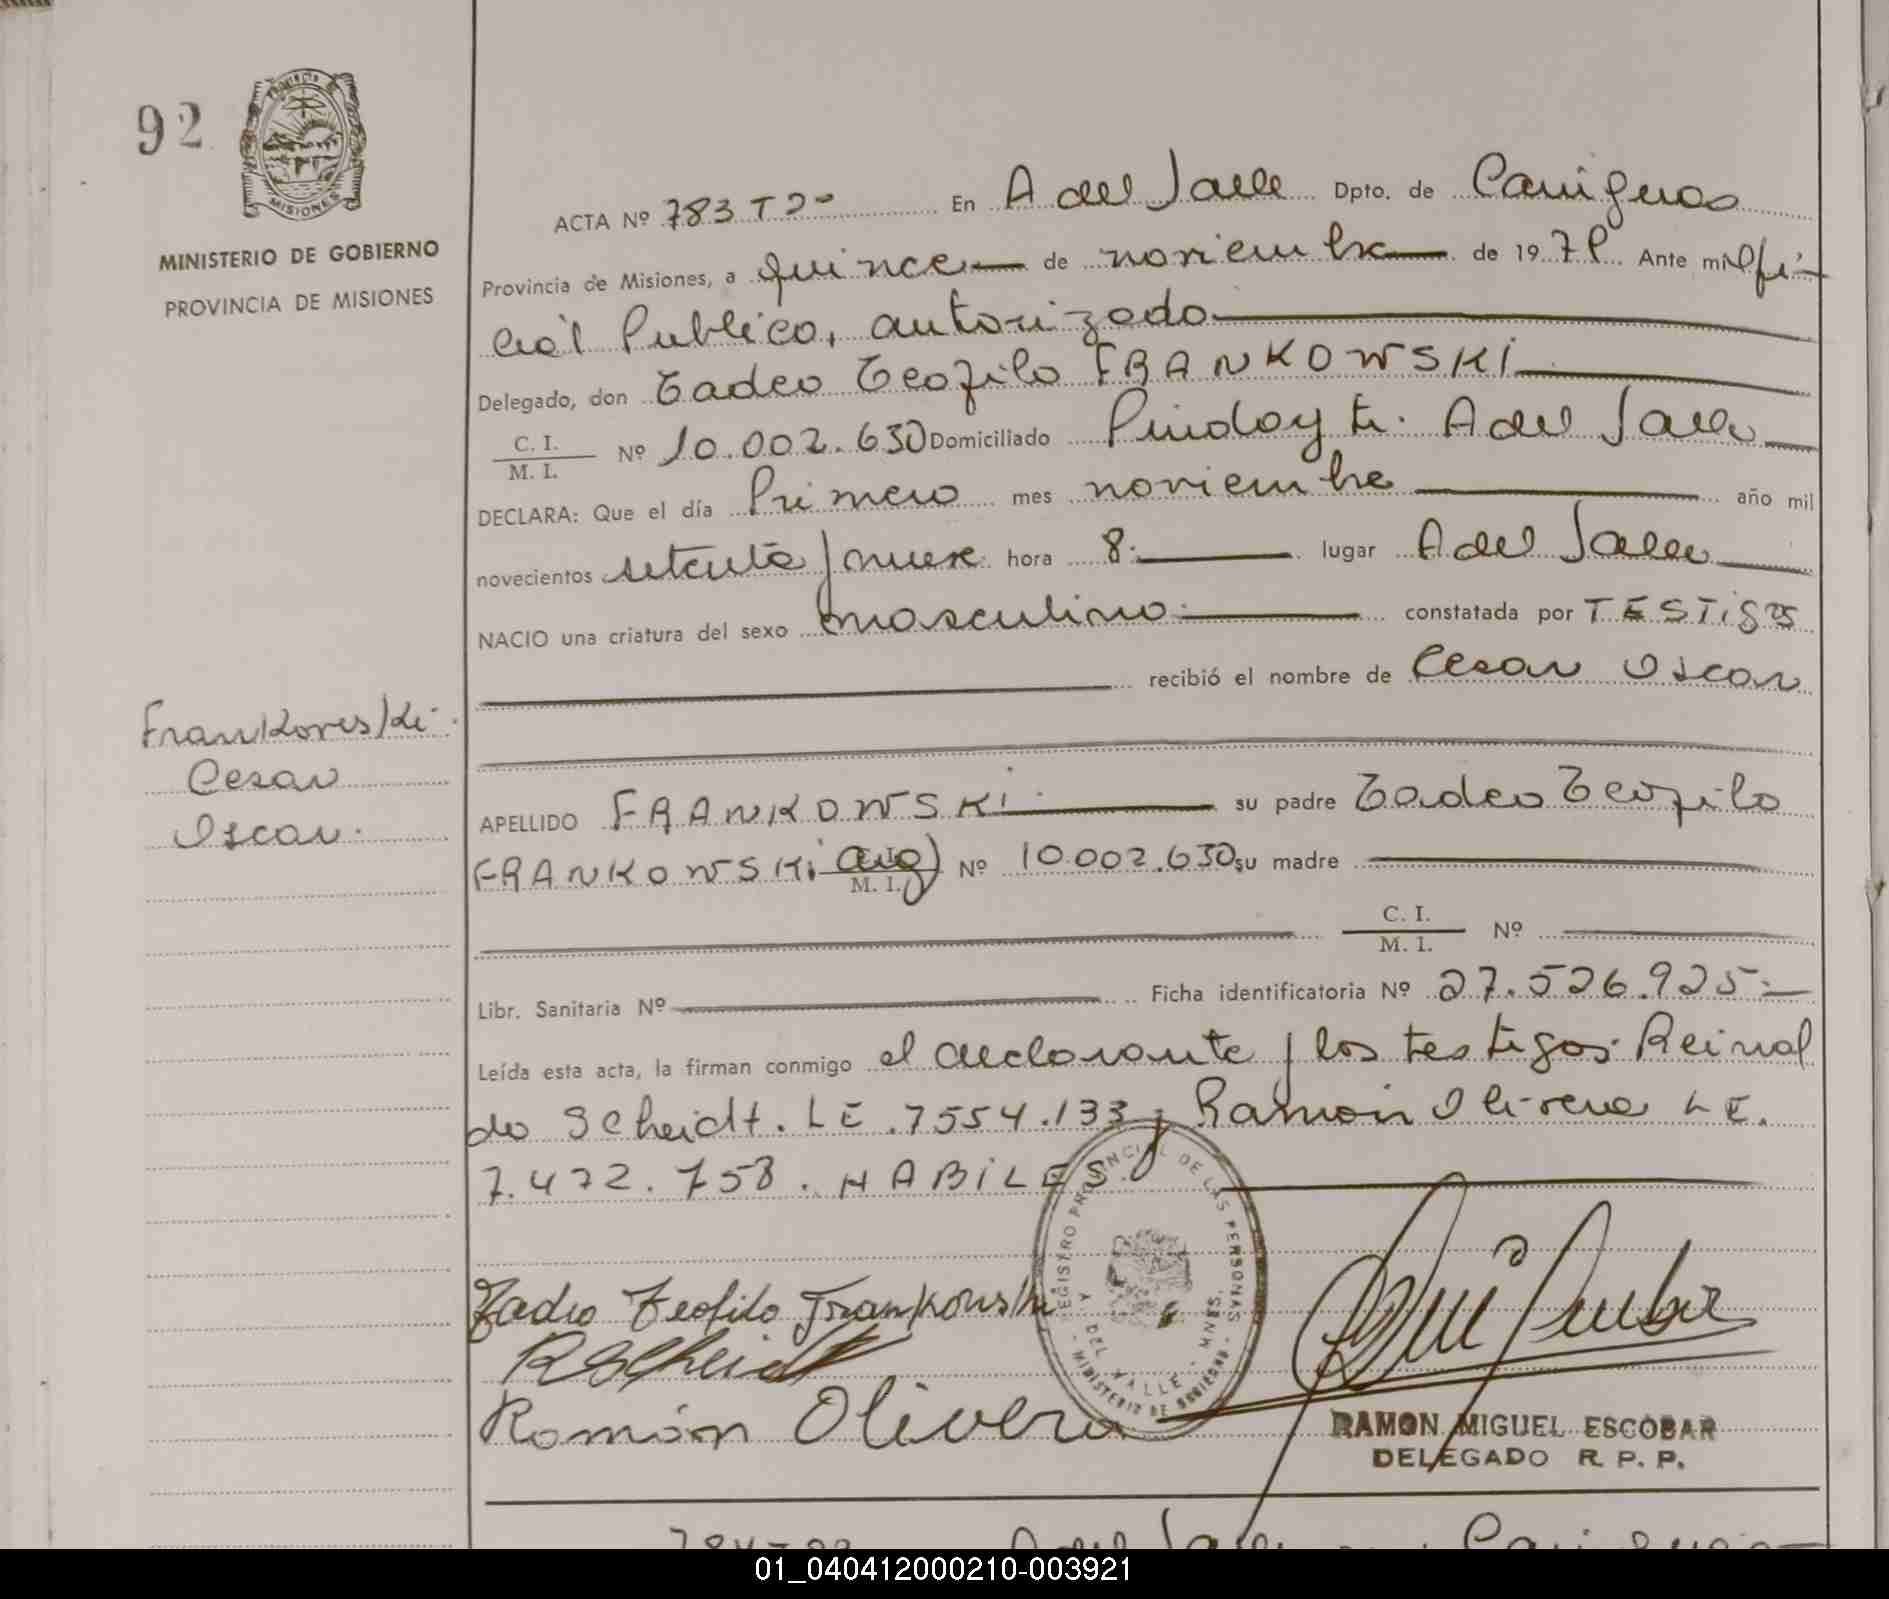 92
PROVINCIA DE
MISIONES
MINISTERIO DE GOBIERNO
PROVINCIA DE MISIONES
ACTA Nº 783 Tº 2º En A del Valle Dpto. de Cainguas
Provincia de Misiones, a quince de noviembre de 1979. Ante mi Ofi-
cial Publico, autorizado
Delegado, don Tadeo Teofilo FRANKOWSKi
C. I.
M. I. Nº 10.002.630 Domiciliado Pindayti. A del Valle
DECLARA: Que el día Primero mes noviembre año mil
novecientos setenta y nueve hora 8. lugar A del Valle
NACIO una criatura del sexo masculino constatada por TESTigos
recibió el nombre de Cesar Oscar
Frankowski
Cesar
Oscar.
APELLIDO FRANKOWSKi su padre Tadeo Teofilo
FRANKOWSKi arg) M. I. Nº 10.002.630 su madre
C. I.
M. I. Nº
Libr. Sanitaria Nº Ficha identificatoria Nº 27.526.925.-
Leída esta acta, la firman conmigo el declarante y los testigos Reinal
do Scheidt. LE. 7554.133 y Ramon Olivera LE.
7.472.758. HABiLES.
Tadeo Teofilo Frankowski
RScheidt
Ramón Olivera
REGISTRO PROVINCIAL DE LAS PERSONAS
MINISTERIO DE GOBIERNO
A DEL VALLE - MNES.
RAMON MIGUEL ESCOBAR
DELEGADO R. P. P.
A del Valle
01_040412000210-003921